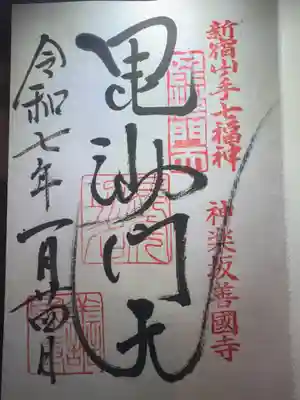 新宿山手七福神
神楽坂善國寺
毘沙門天
令和七年一月